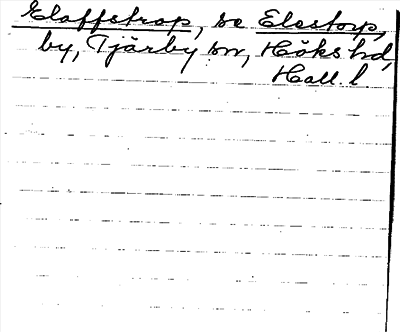 Elaffstrap, se Elestorp,
by, Tjärby sn, Höks hd,
Hall. l